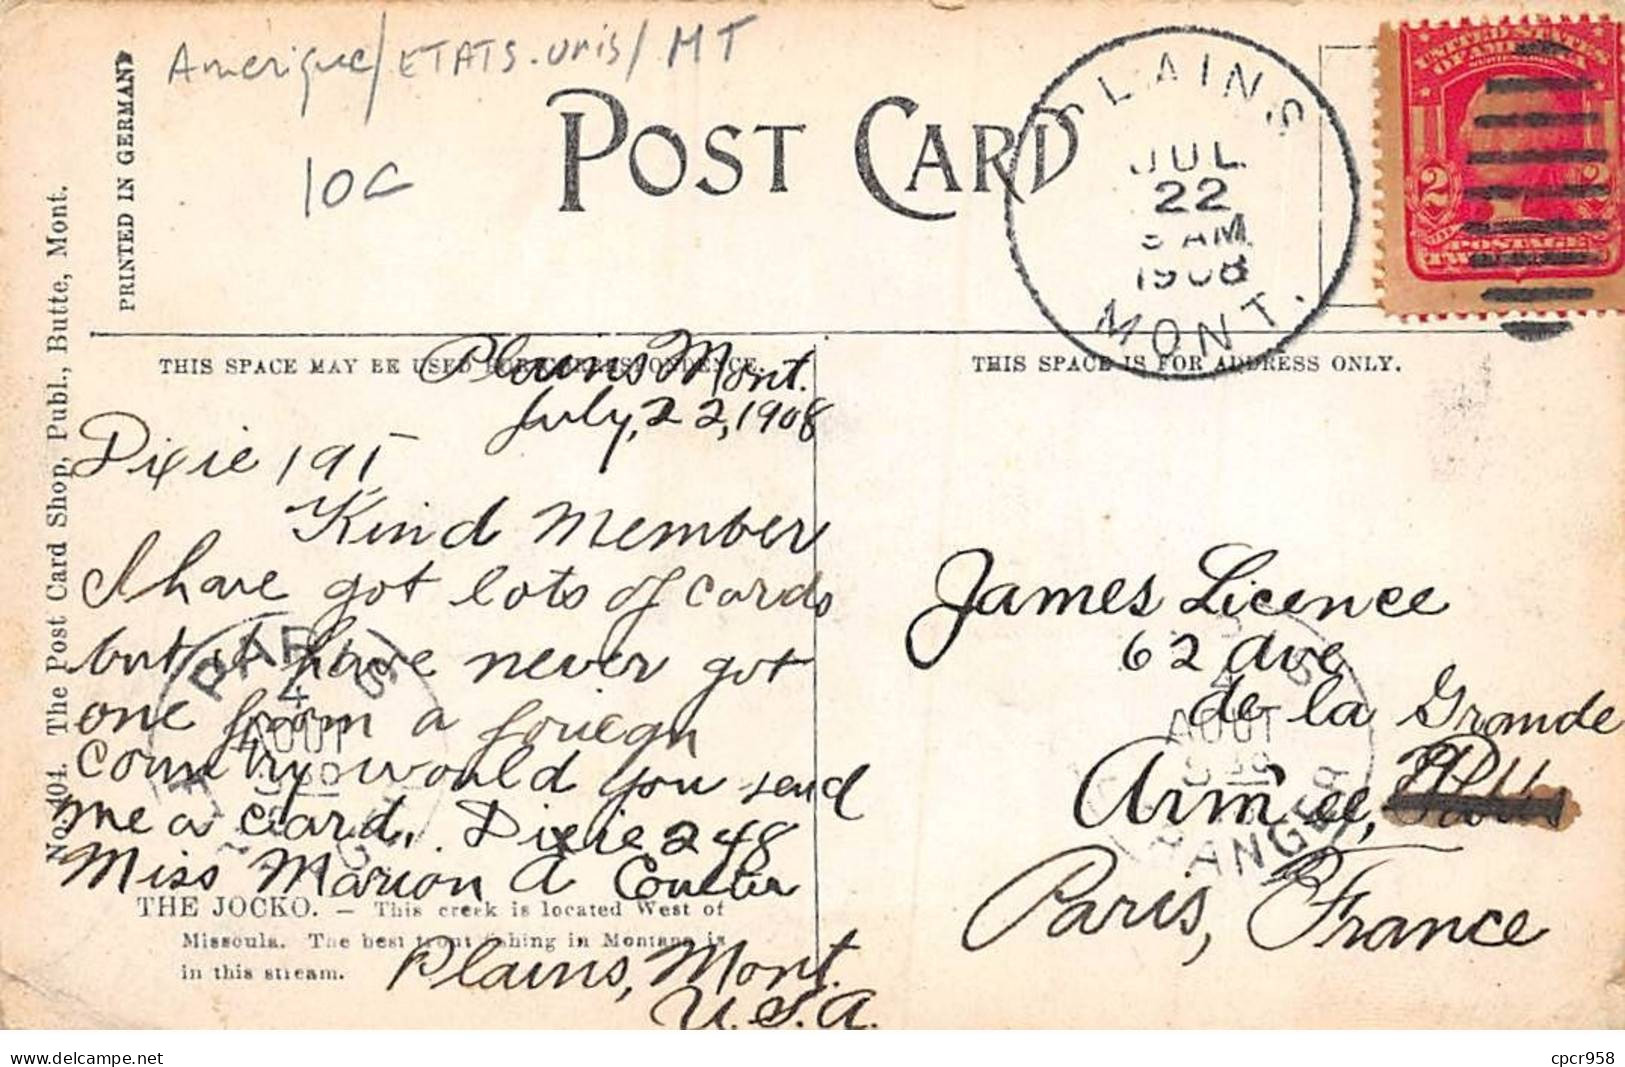 Amerique/ETATS-UNIS/MT
10C
POST CARD
PRINTED IN GERMANY
No. 404. The Post Card Shop, Publ., Butte, Mont.
PLAINS
JUL
22
AM
1908
MONT.
UNITED STATES
OF AMERICA
2 2
POSTAGE
THIS SPACE MAY BE USED FOR CORRESPONDENCE
THIS SPACE IS FOR ADDRESS ONLY.
Plains Mont.
July, 22, 1908
Dixie 191
Kind Member
I have got lots of cards
but have never got
one from a foriegn
Country would you send
me a card. Dixie 248
Miss Marion A Coulter
Plains, Mont.
U.S.A.
THE JOCKO. – This creek is located West of
Missoula. The best trout fishing in Montana is
in this stream.
James Licence
62 Ave
de la Grande
Armee,
Paris, France
PARIS
4
AOUT
ETRANGER
4
AOUT
ETRANGER
delcampe.net
cpcr958